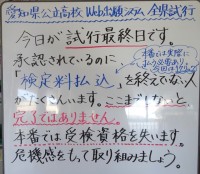 愛知県公立高校 Web出願システム 全県試行
今日が試行最終日です。
承認されているのに、
「検定料払込」を終えていない人
がたくさんいます。ここまでしないと
完了ではありません。
本番では受検資格を失います。
危機感をもって取り組みましょう。
本番では実際に
払う必要あり
今回は1クリック